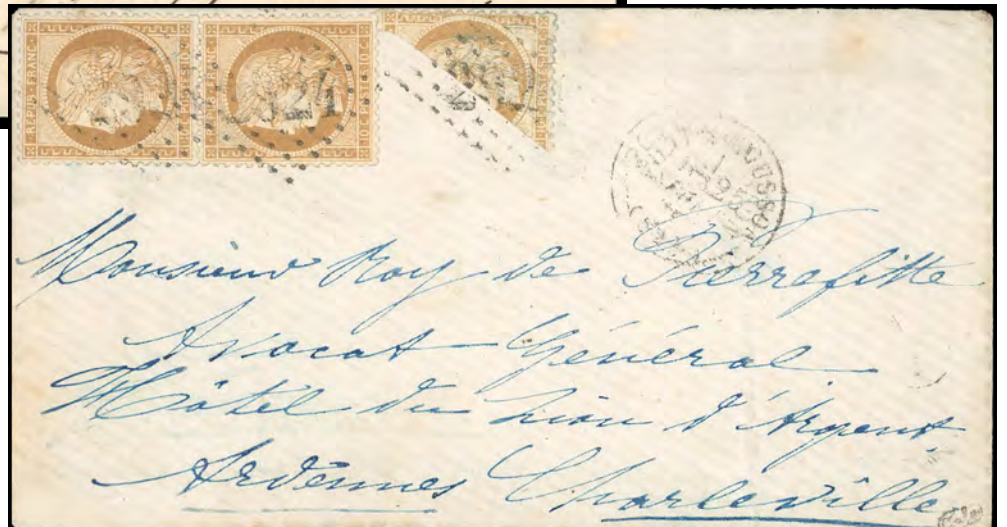 REPUB. FRANC.
REPUB. FRANC.
Monsieur Roy de Pierrefitte
Avocat Général
Hôtel du Lion d'Argent
Ardennes Charleville